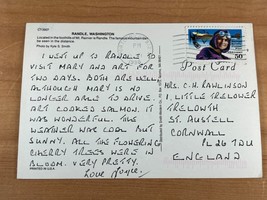 RANDLE, WASHINGTON
Located in the foothills of Mt. Rainier is Randle. The famous mountain can
be seen in the distance.
Photo by Kyle S. Smith
50
Post Card
I WENT UP TO RANDLE TO
VISIT MARY AND ART FOR
TWO DAYS. BOTH ARE WELL
ALTHOUGH MARY IS NO
LONGER ABLE TO DRIVE.
ART COOKED SALMON. IT
WAS WONDERFUL. THE
WEATHER WAS COOL BUT
SUNNY. ALL THE FLOWERING
CHERRY TREES WERE IN
BLOOM. VERY PRETTY.
Love
MRS. C. H. RAWLINSON
1, LITTLE TRELOWER
TRELOWTH
ST. AUSTELL
CORNWALL
PL26 7DU
ENGLAND
PRINTED IN U.S.A.